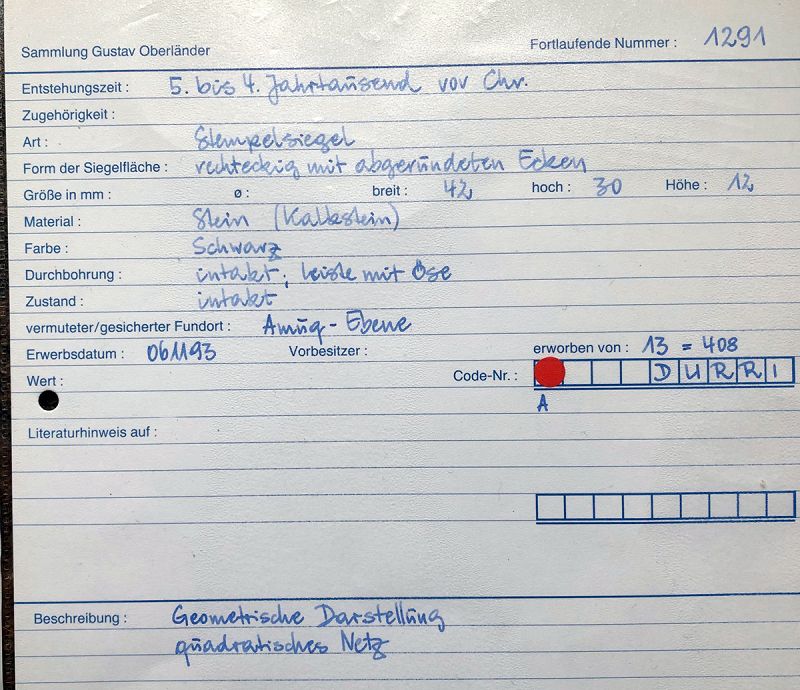 Sammlung Gustav Oberländer Fortlaufende Nummer : 1291
Entstehungszeit : 5. bis 4. Jahrtausend vor Chr.
Zugehörigkeit :
Art : Stempelsiegel
Form der Siegelfläche : rechteckig mit abgerundeten Ecken
Größe in mm : ø : breit : 42 hoch : 30 Höhe : 12
Material : Stein (Kalkstein)
Farbe : Schwarz
Durchbohrung : intakt, Leiste mit Öse
Zustand : intakt
vermuteter/gesicherter Fundort : Amuq-Ebene
Erwerbsdatum : 061193 Vorbesitzer : erworben von : 13 = 408
Wert : Code-Nr. : DURRI
A
Literaturhinweis auf :
Beschreibung : Geometrische Darstellung
quadratisches Netz